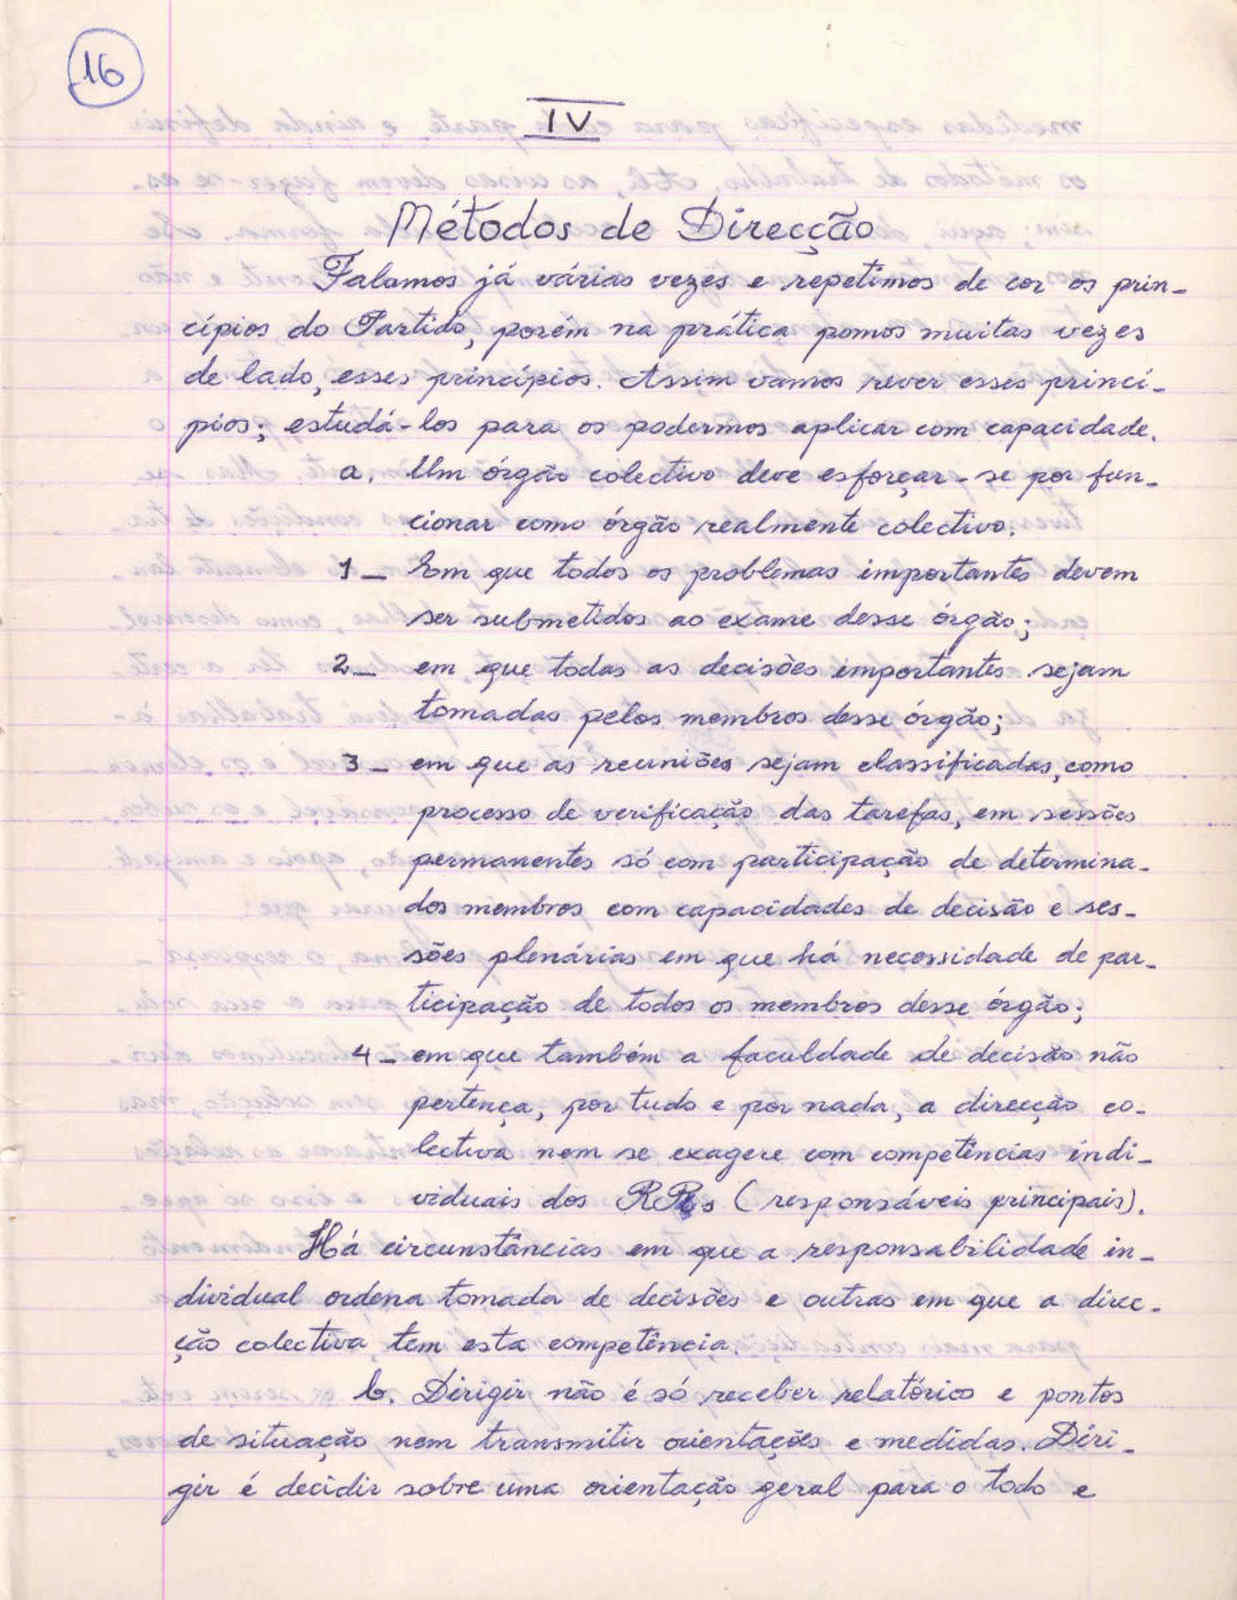 16
IV
Métodos de Direcção
Falamos já várias vezes e repetimos de cor os prin-
cípios do Partido, porém na prática pomos muitas vezes
de lado, esses princípios. Assim vamos rever esses princí-
pios; estudá-los para os podermos aplicar com capacidade.
a. Um órgão colectivo deve esforçar-se por fun-
cionar como órgão realmente colectivo.
1- Em que todos os problemas importantes devem
ser submetidos ao exame desse órgão;
2- em que todas as decisões importantes sejam
tomadas pelos membros desse órgão;
3- em que as reuniões sejam classificadas, como
processo de verificação das tarefas, em sessões
permanentes só com participação de determina-
dos membros com capacidades de decisão e ses-
sões plenárias em que há necessidade de par-
ticipação de todos os membros desse órgão;
4- em que também a faculdade de decisão não
pertença, por tudo e por nada, a direcção co-
lectiva nem se exagere com competências indi-
viduais dos RPs (responsáveis principais).
Há circunstâncias em que a responsabilidade in-
dividual ordena tomada de decisões e outras em que a direc-
ção colectiva, tem esta competência.
b. Dirigir não é só receber relatórios e pontos
de situação nem transmitir orientações e medidas. Diri-
gir é decidir sobre uma orientação geral para o todo e